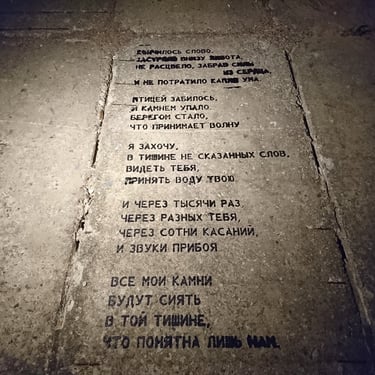 КОНЧИЛОСЬ СЛОВО.
ЗАСТРЯЛО ВНИЗУ ЖИВОТА,
НЕ РАСЦВЕЛО, ЗАБРАВ СИЛЫ
ИЗ СЕРДЦА,
И НЕ ПОТРАТИЛО КАПЛИ УМА.
ПТИЦЕЙ ЗАБИЛОСЬ,
И КАМНЕМ УПАЛО.
БЕРЕГОМ СТАЛО,
ЧТО ПРИНИМАЕТ ВОЛНУ
Я ЗАХОЧУ,
В ТИШИНЕ НЕ СКАЗАННЫХ СЛОВ,
ВИДЕТЬ ТЕБЯ,
ПРИНЯТЬ ВОДУ ТВОЮ.
И ЧЕРЕЗ ТЫСЯЧИ РАЗ
ЧЕРЕЗ РАЗНЫХ ТЕБЯ,
ЧЕРЕЗ СОТНИ КАСАНИЙ,
И ЗВУКИ ПРИБОЯ
ВСЕ МОИ КАМНИ
БУДУТ СИЯТЬ
В ТОЙ ТИШИНЕ,
ЧТО ПОНЯТНА ЛИШЬ НАМ.